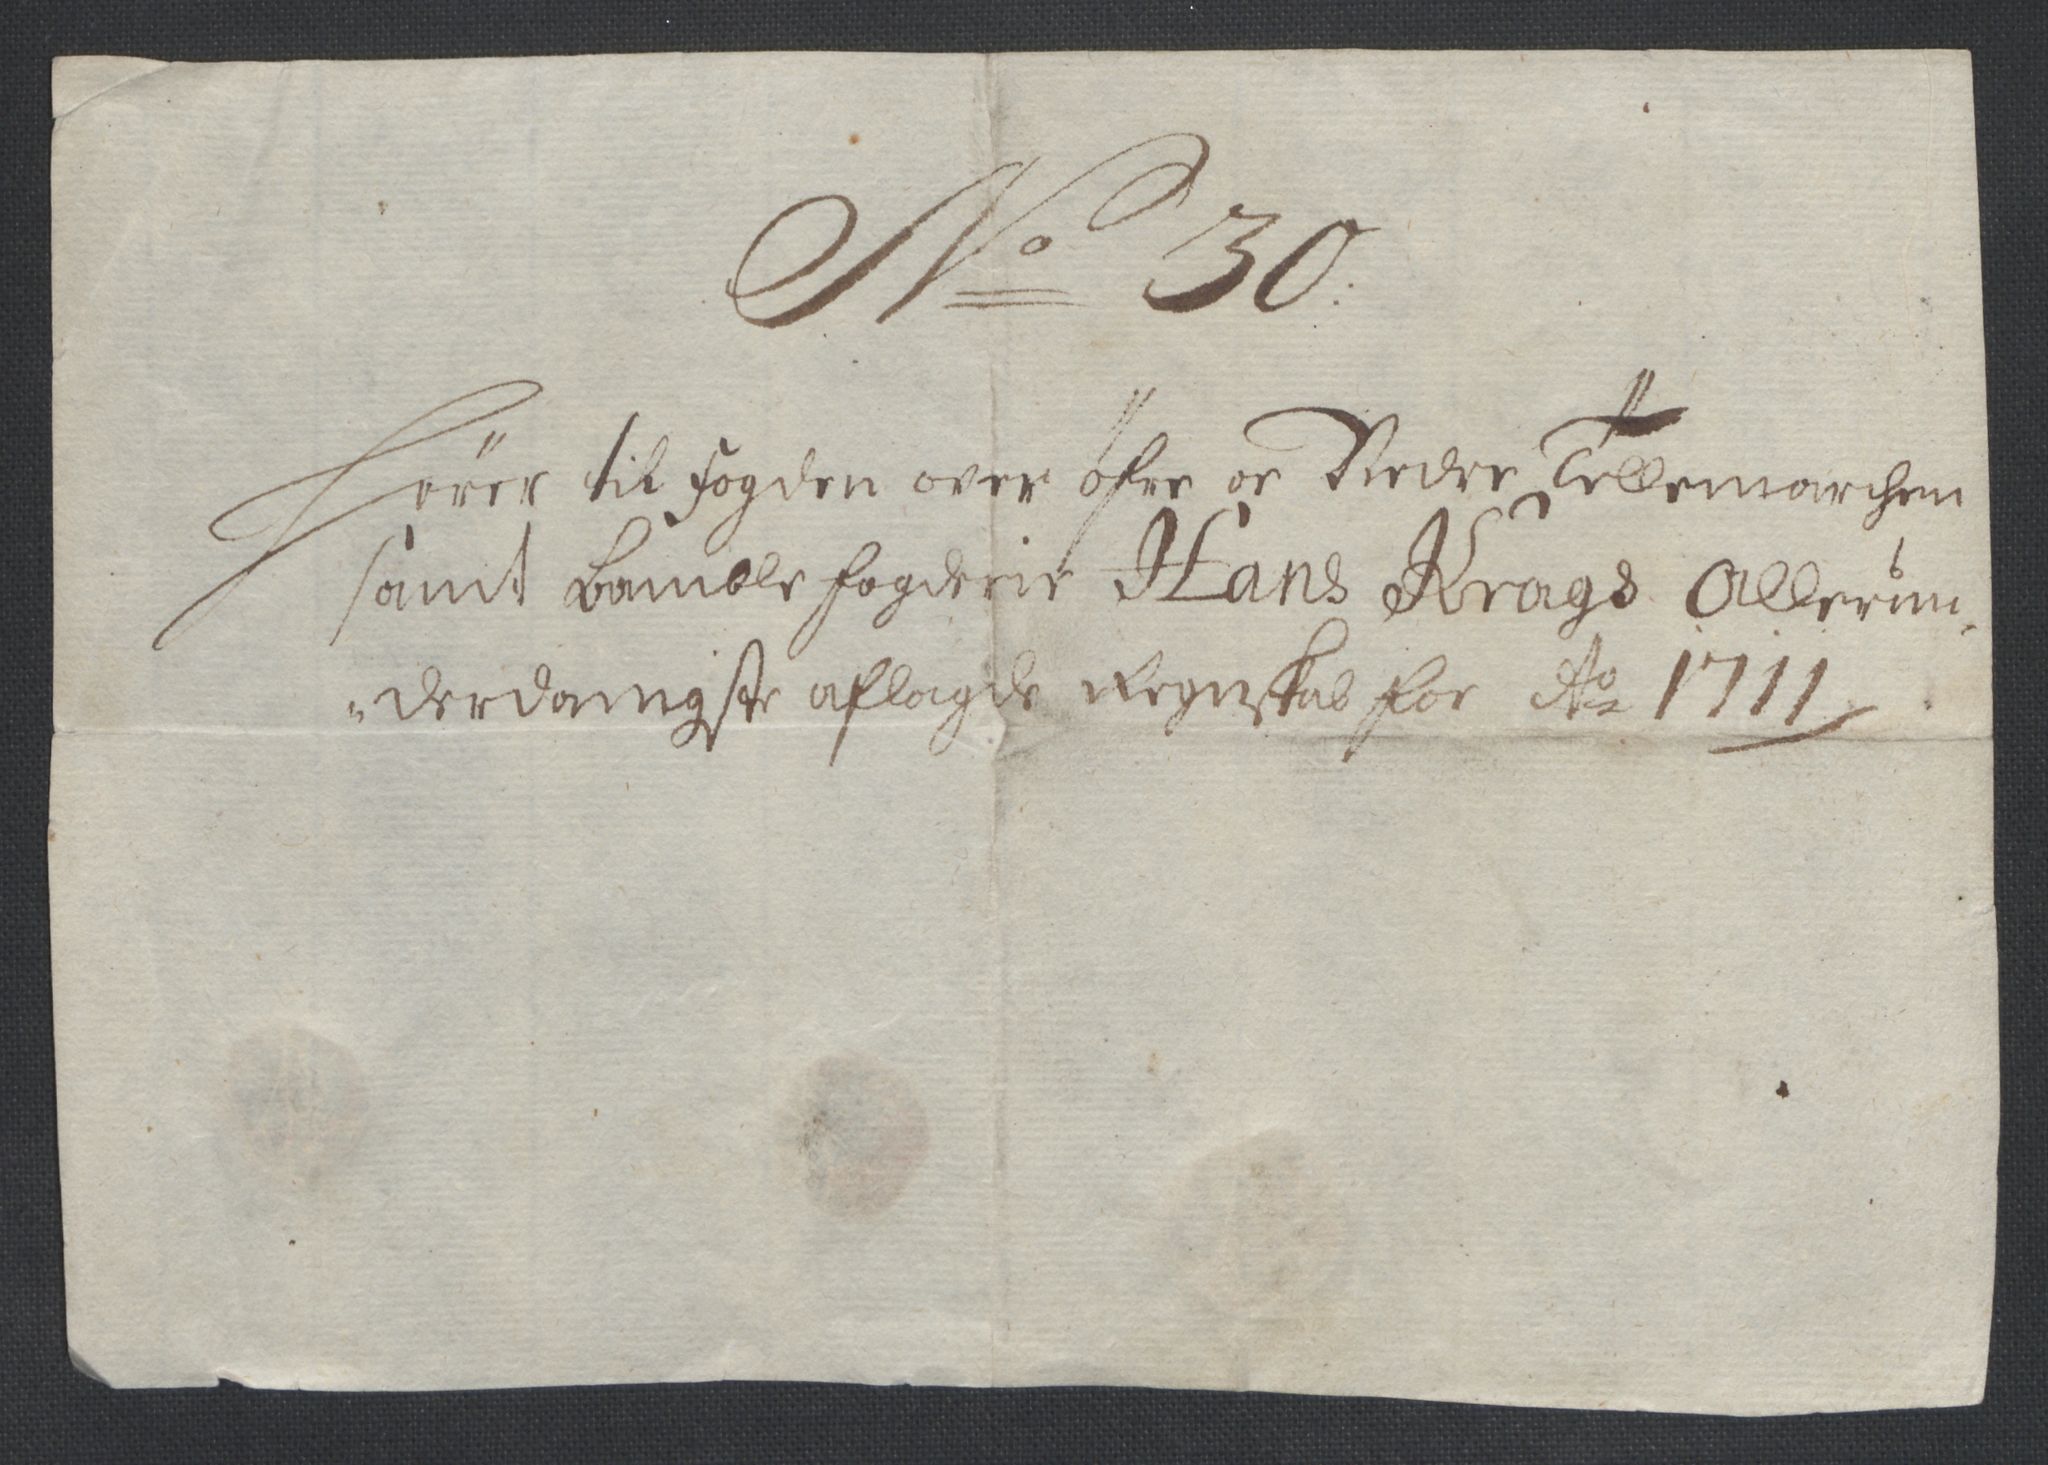 No 30:
Hörer til fogden over öfre oc Nedre Tellemarchen
samt Bamble fogderie Hans Krags Allerun-
-derdanigste aflagde Regnskab for Ao 1711